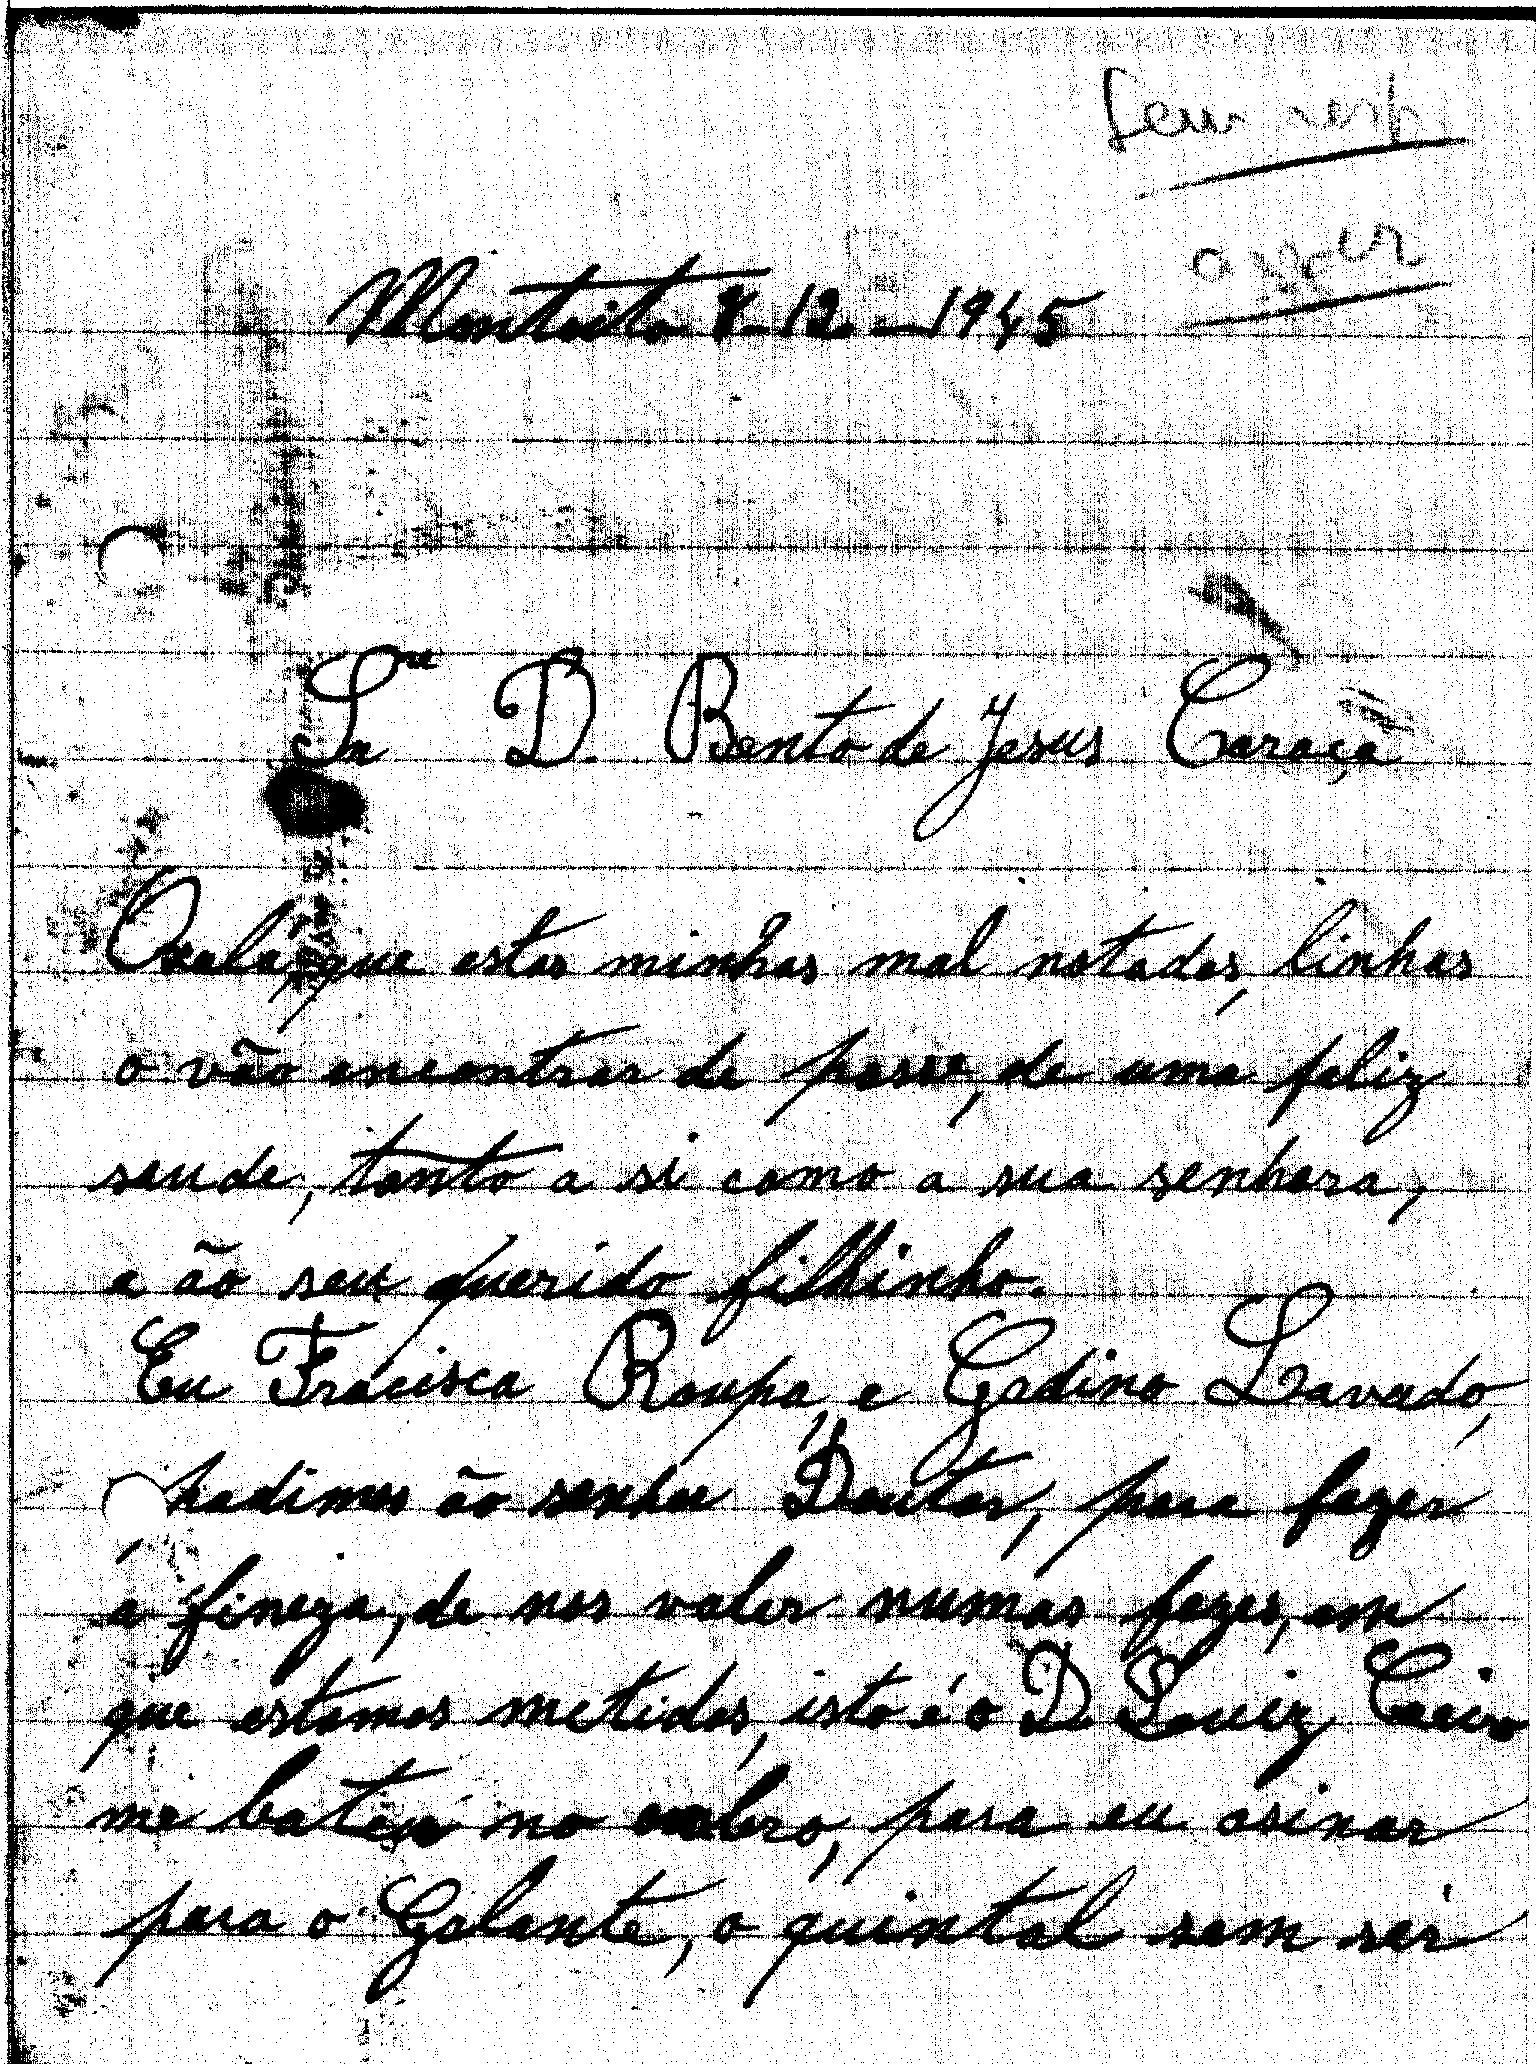 Sem resp.
Montoito 8-12-1945
Snr D. Bento de Jesus Caraça
Oxalá, que estas minhas mal notadas, linhas
o vão encontrar de posse, de uma feliz
saude, tanto a si como a sua senhora,
e ão seu querido filhinho.
Eu Fracisca Roupa, e Galdino Lavado,
pedimos ão senhor Doutor, para fazer
a fineza, de nos valer numas fazes, em
que estamos metidos, isto é o D. Louiz
me bateu no ombro, para eu asinar
para o Galante, o quintal sem ser